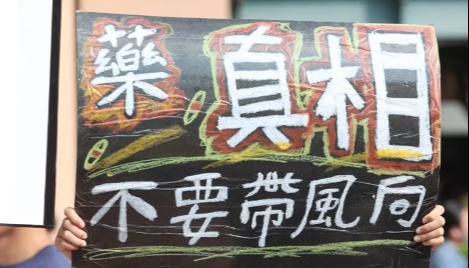 藥真相
不要帶風向